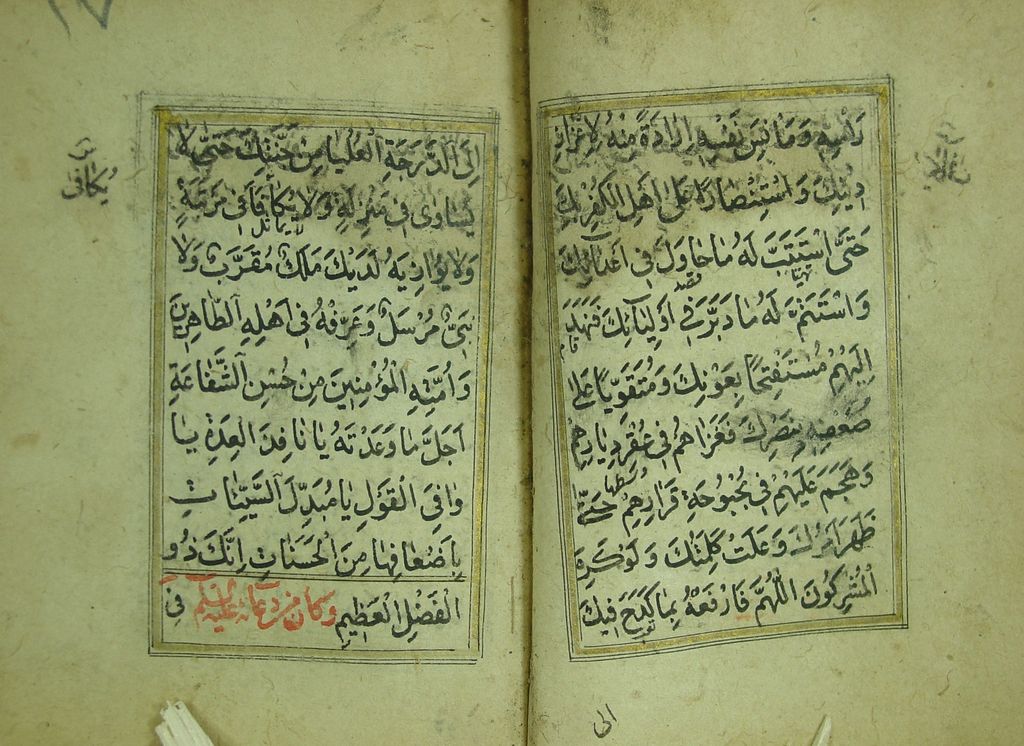 رأسه وَمَأْنِسَ نَفْسِهِ اِرَادَةً مِنْهُ لِإِعْزَازِ
دِينِكَ وَاسْتِنْصَارًا عَلَى اَهْلِ الْكُفْرِ بِكَ
حَتَّى اسْتَتَبَّ لَهُ مَا حَاوَلَ فِي اَعْدَائِكَ
وَاسْتَتَمَّ لَهُ مَا دَبَّرَ فِي اَوْلِيَائِكَ فَنَهَدَ
اِلَيْهِمْ مُسْتَفْتِحًا بِعَوْنِكَ وَمُتَقَوِّيًا عَلَى
ضَعْفِهِ بِنَصْرِكَ فَغَزَاهُمْ فِي عُقْرِ دِيَارِهِمْ
وَهَجَمَ عَلَيْهِمْ فِي بُحْبُوحَةِ قَرَارِهِمْ حَتَّى
ظَهَرَ اَمْرُكَ وَعَلَتْ كَلِمَتُكَ وَلَوْ كَرِهَ
الْمُشْرِكُونَ اَللّٰهُمَّ فَارْفَعْهُ بِمَا كَدَحَ فِيكَ
الى
اِلَى الدَّرَجَةِ الْعُلْيَا مِنْ جَنَّتِكَ حَتَّى لَا
يُسَاوَى فِي مَنْزِلَةٍ وَلَا يُكَافَأَ فِي مَرْتَبَةٍ
وَلَا يُوَازِيَهُ لَدَيْكَ مَلَكٌ مُقَرَّبٌ وَلَا
نَبِيٌّ مُرْسَلٌ وَعَرِّفْهُ فِي اَهْلِهِ الطَّاهِرِينَ
وَاُمَّتِهِ الْمُؤْمِنِينَ مِنْ حُسْنِ الشَّفَاعَةِ
اَجَلَّ مَا وَعَدْتَهُ يَا نَافِذَ الْعِدَةِ يَا
وَافِيَ الْقَوْلِ يَا مُبَدِّلَ السَّيِّئَاتِ
بِاَضْعَافِهَا مِنَ الْحَسَنَاتِ اِنَّكَ ذُو
الْفَضْلِ الْعَظِيمِ وَكَانَ مِنْ دُعَائِهِ عَلَيْهِ السَّلَامُ فِي